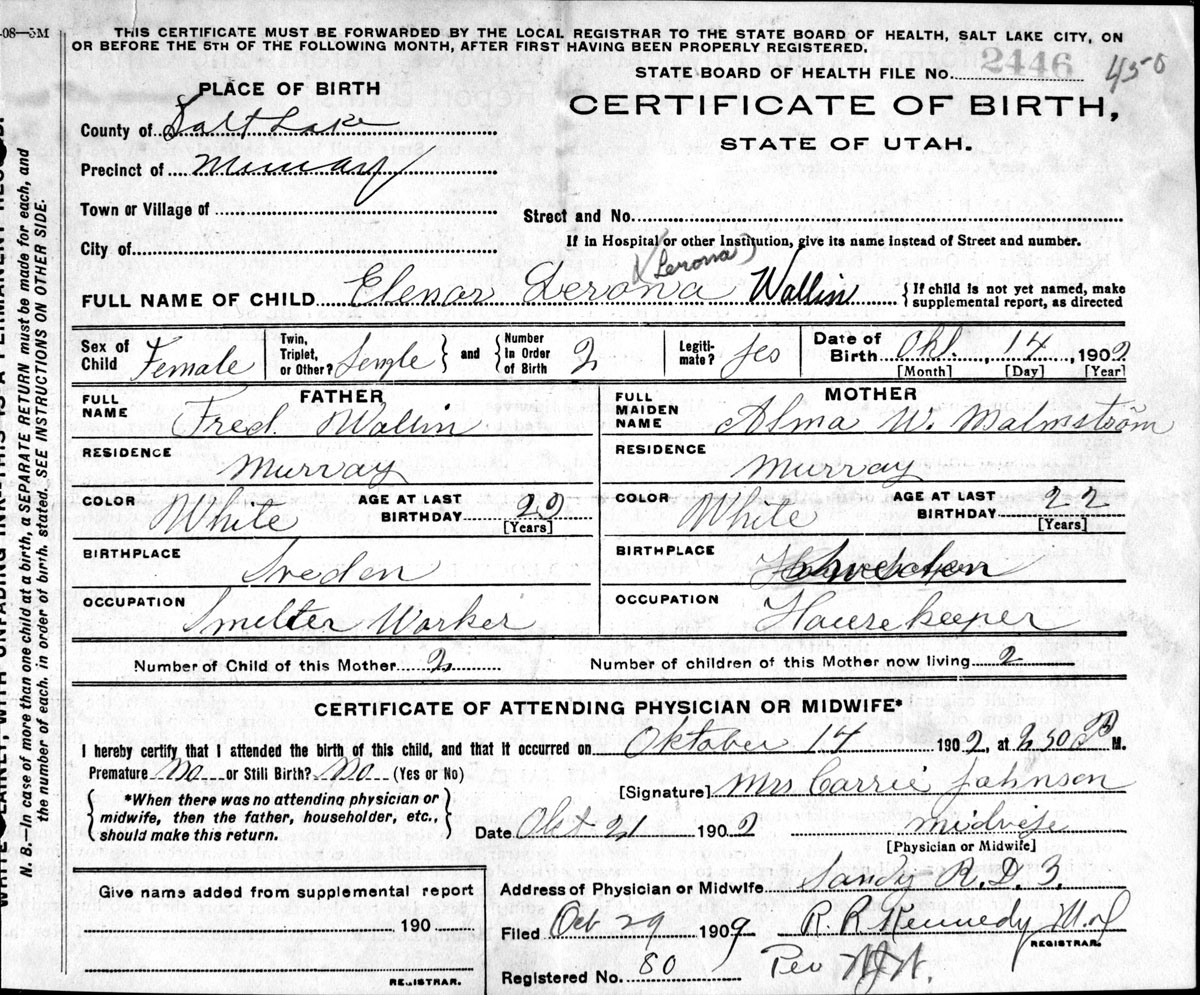 -08—5M
THIS CERTIFICATE MUST BE FORWARDED BY THE LOCAL REGISTRAR TO THE STATE BOARD OF HEALTH, SALT LAKE CITY, ON
OR BEFORE THE 5TH OF THE FOLLOWING MONTH, AFTER FIRST HAVING BEEN PROPERLY REGISTERED.
STATE BOARD OF HEALTH FILE NO. 2446 450
PLACE OF BIRTH
CERTIFICATE OF BIRTH,
STATE OF UTAH.
County of Salt Lake
Precinct of Murray
Town or Village of
Street and No.
City of
If in Hospital or other Institution, give its name instead of Street and number.
(Lerona)
FULL NAME OF CHILD Elenor Lerona Wallin {If child is not yet named, make
supplemental report, as directed
Sex of Child Female
Twin, Triplet, or Other? Sengle } and { Number In Order of Birth 2
Legiti- mate? Jes
Date of Birth Okt. , 14 , 1909
[Month] [Day] [Year]
FATHER
FULL NAME Fred. Wallin
RESIDENCE Murray
COLOR White AGE AT LAST BIRTHDAY 29
[Years]
BIRTHPLACE Sveden
OCCUPATION Smelter Worker
MOTHER
FULL MAIDEN NAME Alma W. Malmström
RESIDENCE Murray
COLOR White AGE AT LAST BIRTHDAY 22
[Years]
BIRTHPLACE Sveden
OCCUPATION Hausekeeper
Number of Child of this Mother 2
Number of children of this Mother now living 2
CERTIFICATE OF ATTENDING PHYSICIAN OR MIDWIFE*
I hereby certify that I attended the birth of this child, and that it occurred on Oktober 14 1909, at 2 30 P M.
Premature No or Still Birth? No (Yes or No)
[Signature] Mrs Carrie Johnson
{ *When there was no attending physician or
midwife, then the father, householder, etc.,
should make this return. }
Date Okt 21 1909 midvife
[Physician or Midwife]
Give name added from supplemental report
190
REGISTRAR.
Address of Physician or Midwife Sandy R. D. 3.
Filed Oct 29 1909 R. R. Kennedy M.D
REGISTRAR.
Registered No. 80 Per
N. B.—In case of more than one child at a birth, a SEPARATE RETURN must be made for each, and
the number of each, in order of birth, stated. SEE INSTRUCTIONS ON OTHER SIDE.